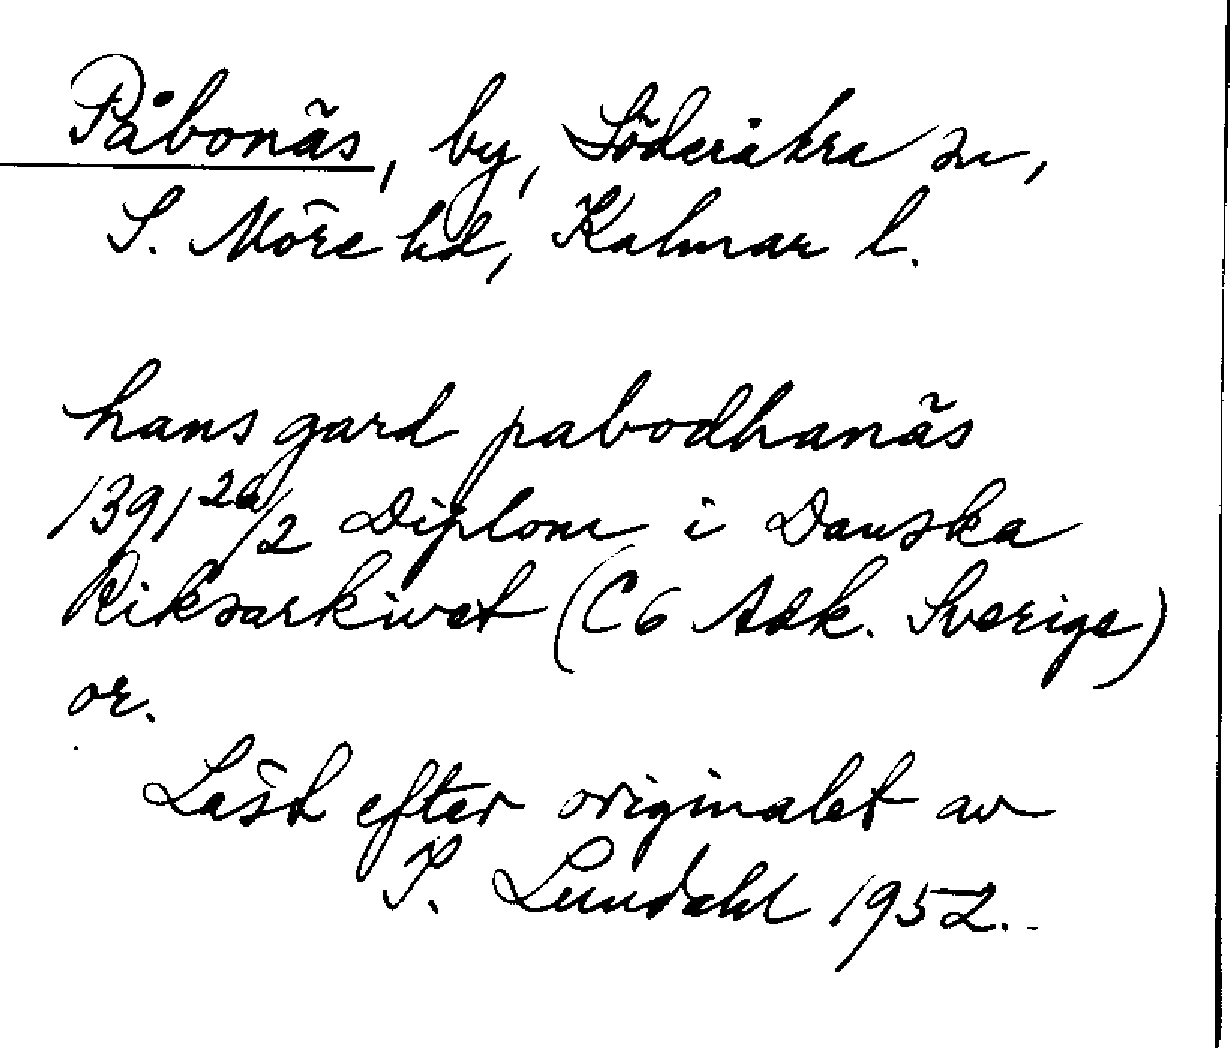 Påbonäs, by, Söderåkra sn,
S. Möre hd, Kalmar l.
hans gard pabodhanäs
1391 /2 Diplom i Danska
Riksarkivet (C6 Adk. Sverige)
or.
Läst efter originalet av
I. Lundahl 1952.